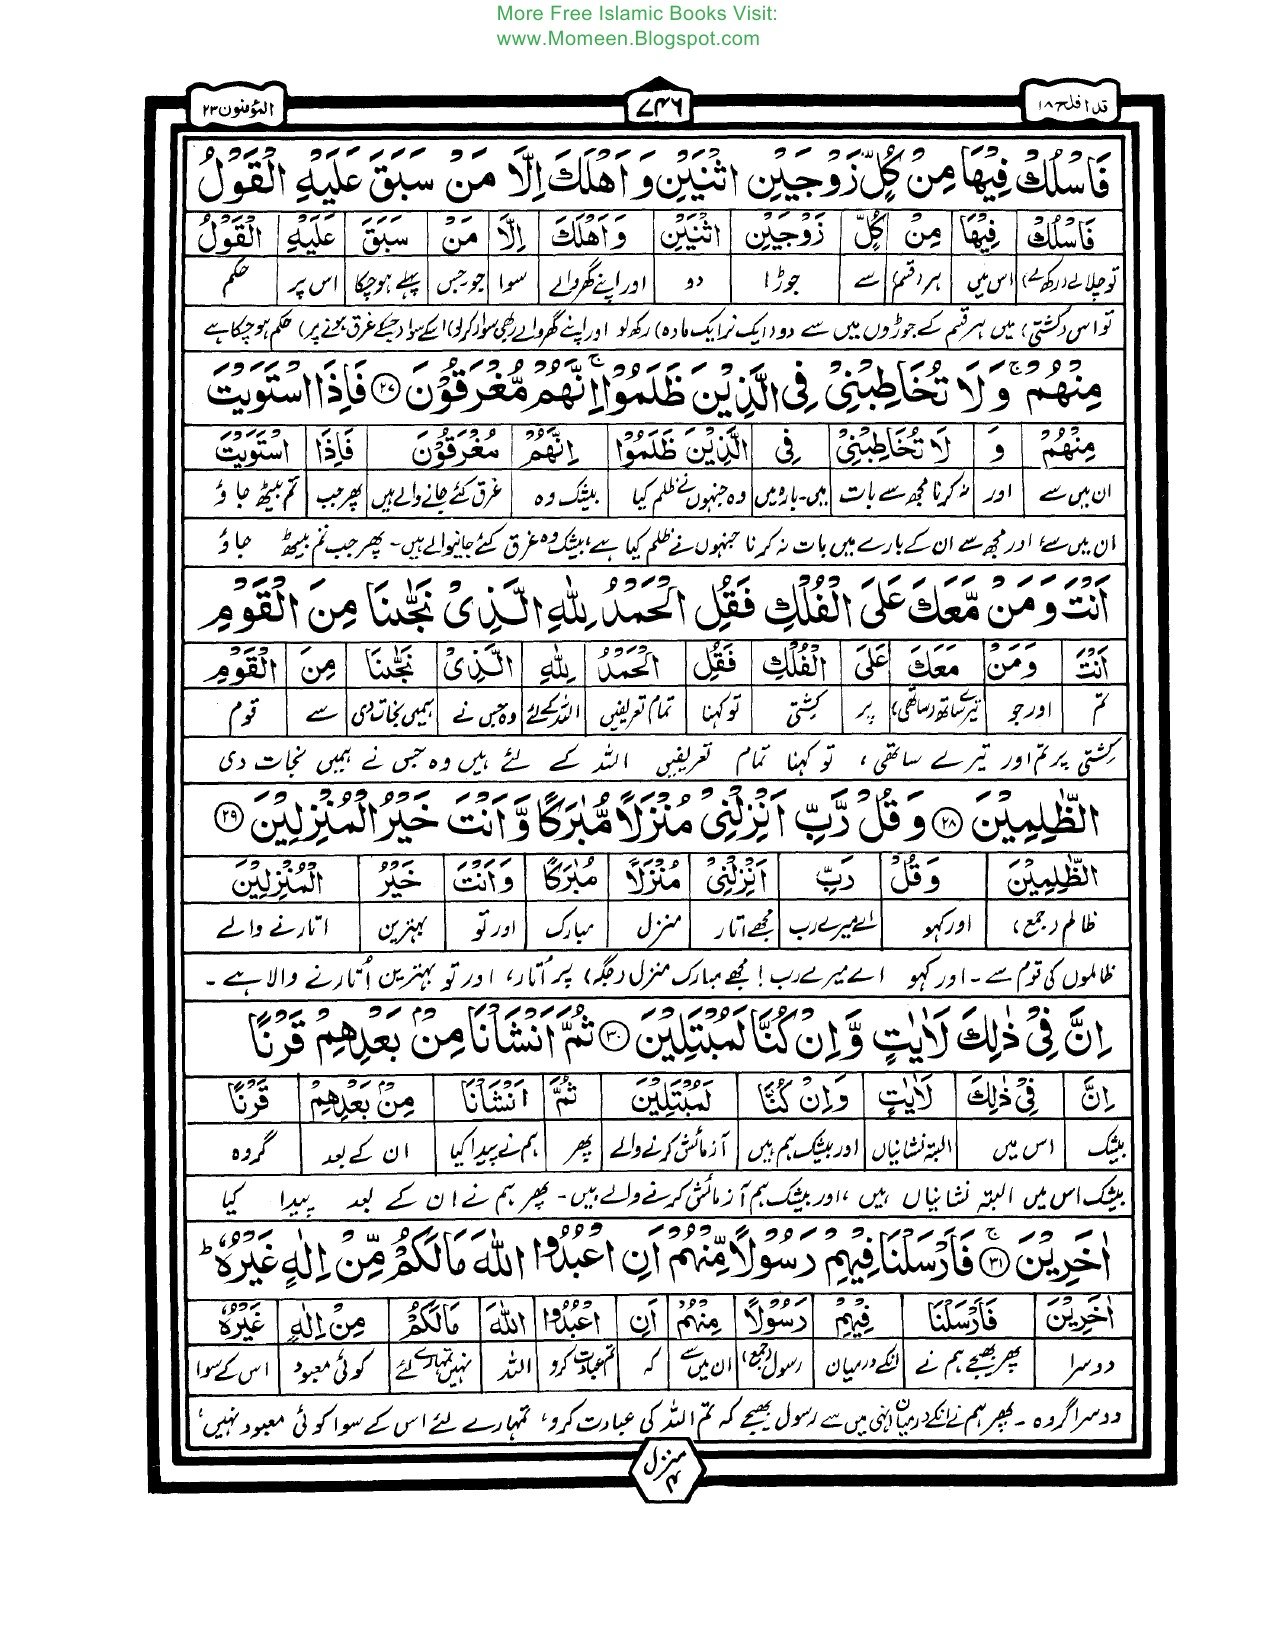 More Free Islamic Books Visit:
www.Momeen.Blogspot.com
قد افلح ۱۸
۷۴۶
المؤمنون ۲۳
فَاسْلُكْ فِيْهَا مِنْ كُلٍّ زَوْجَيْنِ اثْنَيْنِ وَ اَهْلَكَ اِلَّا مَنْ سَبَقَ عَلَيْهِ الْقَوْلُ
فَاسْلُكْ فِيْهَا مِنْ كُلٍّ زَوْجَيْنِ اثْنَيْنِ وَ اَهْلَكَ اِلَّا مَنْ سَبَقَ عَلَيْهِ الْقَوْلُ
تو چلالے (رکھ لے) اس میں ہر (قسم) سے جوڑا دو اور اپنے گھر والے سوا جو۔جس پہلے ہوچکا اس پر حکم
تو اس (کشتی) میں ہر قسم کے جوڑوں میں سے دو (ایک نر ایک مادہ) رکھ لو اور اپنے گھر والے (بھی سوار کرلو) اسکے سوا (جسکے غرق ہونے پر) حکم ہو چکا ہے
مِنْهُمْ ۚ وَ لَا تُخَاطِبْنِيْ فِي الَّذِيْنَ ظَلَمُوْا ۚ اِنَّهُمْ مُّغْرَقُوْنَ ﴿۲۷﴾ فَاِذَا اسْتَوَيْتَ
مِنْهُمْ وَ لَا تُخَاطِبْنِيْ فِي الَّذِيْنَ ظَلَمُوْا اِنَّهُمْ مُغْرَقُوْنَ فَاِذَا اسْتَوَيْتَ
ان میں سے اور نہ کرنا مجھ سے بات میں۔بارہ میں وہ جنہوں نے ظلم کیا بیشک وہ غرق کئے جانے والے ہیں پھر جب تم بیٹھ جاؤ
ان میں سے، اور مجھ سے ان کے بارے میں بات نہ کرنا جنہوں نے ظلم کیا ہے، بیشک وہ غرق کئے جانیوالے ہیں۔ پھر جب تم بیٹھ جاؤ
اَنْتَ وَ مَنْ مَّعَكَ عَلَى الْفُلْكِ فَقُلِ الْحَمْدُ لِلّٰهِ الَّذِيْ نَجّٰىنَا مِنَ الْقَوْمِ
اَنْتَ وَمَنْ مَعَكَ عَلَى الْفُلْكِ فَقُلِ الْحَمْدُ لِلّٰهِ الَّذِيْ نَجّٰىنَا مِنَ الْقَوْمِ
تم اور جو تیرے ساتھ (ساتھی) پر کشتی تو کہنا تمام تعریفیں اللہ کے لئے وہ جس نے ہمیں نجات دی سے قوم
کشتی پر تم اور تیرے ساتھی، تو کہنا تمام تعریفیں اللہ کے لئے ہیں وہ جس نے ہمیں نجات دی
الظّٰلِمِيْنَ ﴿۲۸﴾ وَ قُلْ رَّبِّ اَنْزِلْنِيْ مُنْزَلًا مُّبٰرَكًا وَّ اَنْتَ خَيْرُ الْمُنْزِلِيْنَ ﴿۲۹﴾
الظّٰلِمِيْنَ وَقُلْ رَبِّ اَنْزِلْنِيْ مُنْزَلًا مُبٰرَكًا وَاَنْتَ خَيْرُ الْمُنْزِلِيْنَ
ظالم (جمع) اور کہو اے میرے رب مجھے اتار منزل مبارک اور تو بہترین اتارنے والے
ظالموں کی قوم سے۔ اور کہو اے میرے رب! مجھے مبارک منزل (جگہ) پر اُتار، اور تو بہترین اُتارنے والا ہے۔
اِنَّ فِيْ ذٰلِكَ لَاٰيٰتٍ وَّ اِنْ كُنَّا لَمُبْتَلِيْنَ ﴿۳۰﴾ ثُمَّ اَنْشَاْنَا مِنْۢ بَعْدِهِمْ قَرْنًا
اِنَّ فِيْ ذٰلِكَ لَاٰيٰتٍ وَاِنْ كُنَّا لَمُبْتَلِيْنَ ثُمَّ اَنْشَاْنَا مِنْۢ بَعْدِهِمْ قَرْنًا
بیشک اس میں البتہ نشانیاں اور بیشک ہم ہیں آزمائش کرنے والے پھر ہم نے پیدا کیا ان کے بعد گروہ
بیشک اس میں البتہ نشانیاں ہیں، اور بیشک ہم آزمائش کرنے والے ہیں۔ پھر ہم نے ان کے بعد پیدا کیا
اٰخَرِيْنَ ﴿۳۱﴾ ۚ فَاَرْسَلْنَا فِيْهِمْ رَسُوْلًا مِّنْهُمْ اَنِ اعْبُدُوا اللّٰهَ مَا لَكُمْ مِّنْ اِلٰهٍ غَيْرُهٗ ؕ
اٰخَرِيْنَ فَاَرْسَلْنَا فِيْهِمْ رَسُوْلًا مِنْهُمْ اَنِ اعْبُدُوا اللّٰهَ مَالَكُمْ مِنْ اِلٰهٍ غَيْرُهٗ
دوسرا پھر بھیجے ہم نے انکے درمیان رسول (جمع) ان میں سے کہ تم عبادت کرو اللہ نہیں تمہارے لئے کوئی معبود اس کے سوا
دوسرا گروہ۔ پھر ہم نے انکے درمیان انہی میں سے رسول بھیجے کہ تم اللہ کی عبادت کرو، تمہارے لئے اس کے سوا کوئی معبود نہیں،
منزل ۴